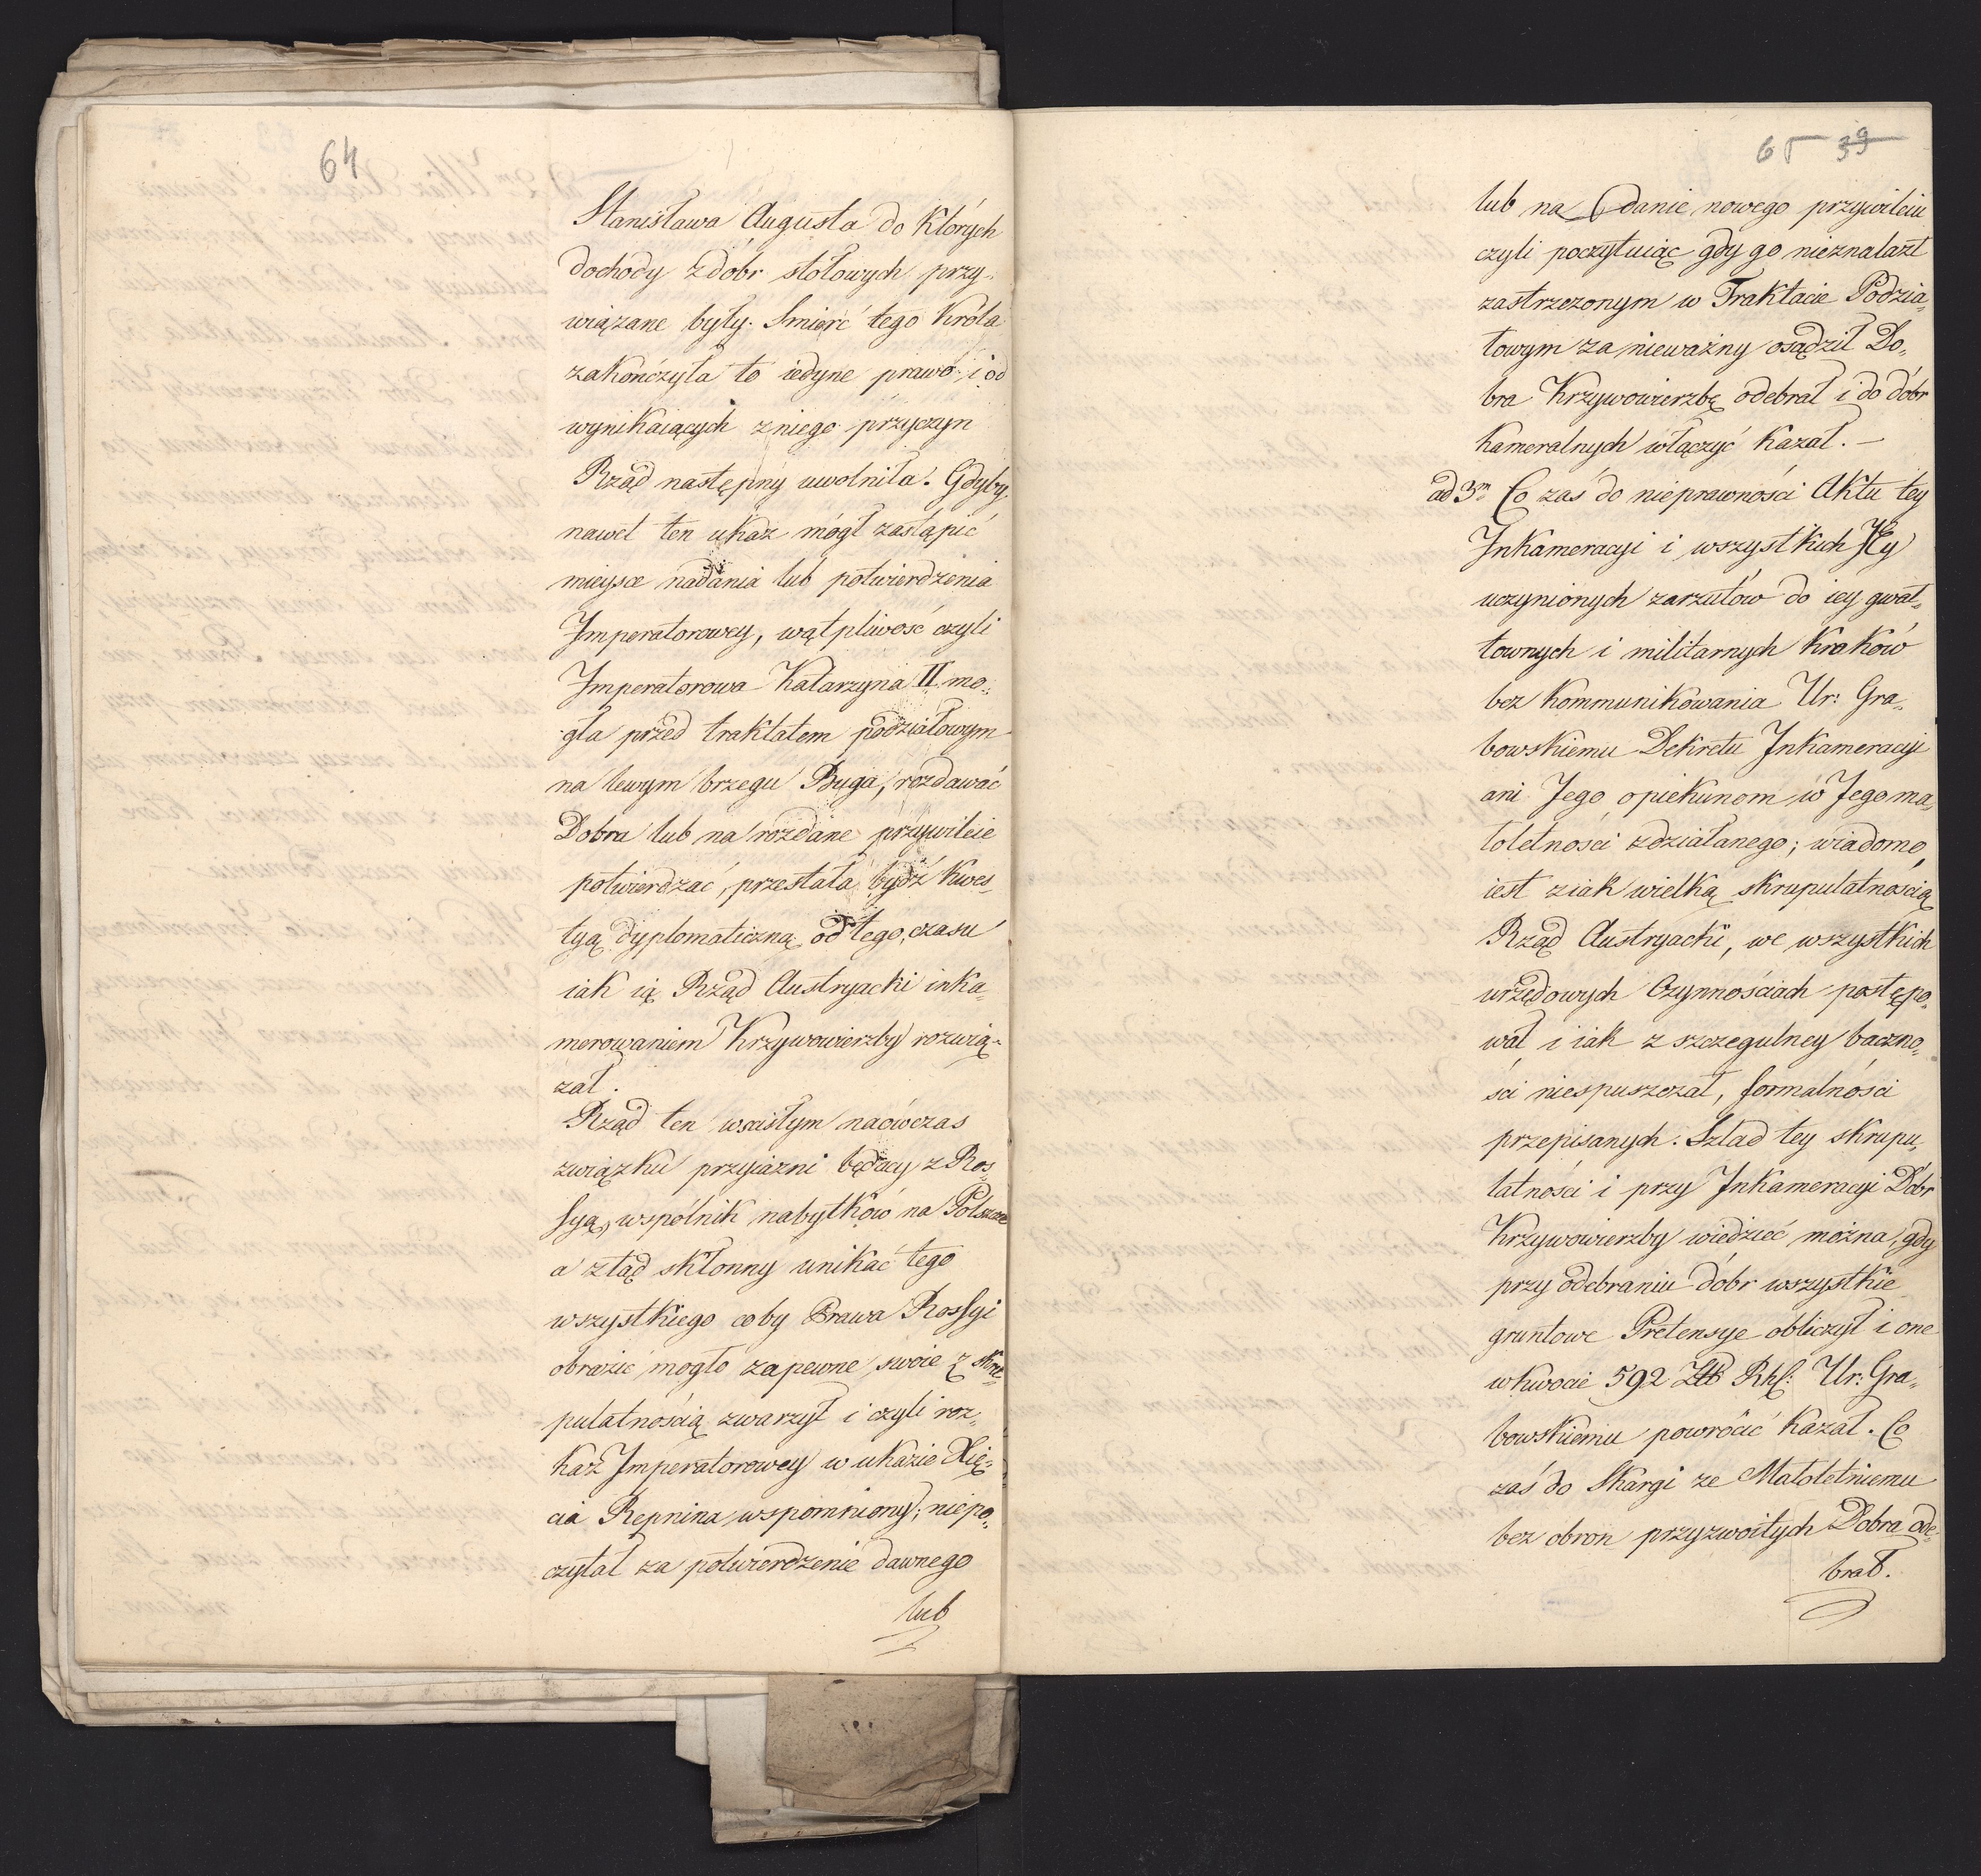 64
Stanisława Augusta do których
dochody z dóbr stołowych przy„
wiązane były. Smierć tego Króla
zakończyła to iedyne prawo i od
wynikaiących z niego przyczyn
Rząd następny uwolniła. Gdyby
nawet ten ukaz mógł zastąpić
mieysce nadania lub potwierdzenia
Imperatorowey, wątpliwość czyli
Imperatorowa Katarzyna II mo„
gła przed traktatem podziałowym
na lewym brzegu Buga, rozdawać
Dobra lub na rozdane przywileie
potwierdzać, przestała bydź kwes„
tyą dyplomaticzną od tego czasu
iak ią Rząd Austryacki inka„
merowaniem Krzywowierzby rozwią„
zał.
Rząd ten w scisłym naówczas
związku przyiazni będący z Ros„
syą, wspólnik nabytków na Polszcze
a ztąd skłonny unikać tego
wszystkiego coby Prawa Rossyi
obrazić mogło zapewne swoie z skru„
pulatnością zwarzył i czyli roz„
kaz Imperatorowey w ukazie Xię„
cia Repnina wspomniony; niepo„
czytał za potwierdzenie dawnego
lub
65 39
lub na danie nowego przywileiu
czyli poczytuiąc gdy go nieznalazł
zastrzeżonym w Traktacie Podzia„
łowym za nieważny osądził Do„
bra Krzywowierzbę odebrał i do dóbr
Kameralnych włączyć kazał. —
ad 3m Co zaś do nieprawności Aktu tey
Inkameracyi i wszystkich Jey
uczynionych zarzutów do iey gwał„
townych i militarnych kroków
bez kommunikowania Ur: Gra„
bowskiemu Dekretu Inkameracyi
ani Jego opiekunom w Jego ma„
łoletności zdziałanego; wiadomo
iest z iak wielką skrupulatnością
Rząd Austryacki, we wszystkich
urzędowych Czynnościach postępo„
wał i iak z szczegulney baczno„
ści niespuszczał, formalności
przepisanych. Szlad tey skrupu„
latności i przy Inkameracyi Dóbr
Krzywowierzby widzieć można, gdy
przy odebraniu dóbr wszystkie
gruntowe Pretensye obliczył i one
w kwocie 592 Rhf: Ur: Gra„
bowskiemu powrócić kazał. Co
zaś do Skargi ze Małoletniemu
bez obron przyzwoitych Dobra ode„
brał.